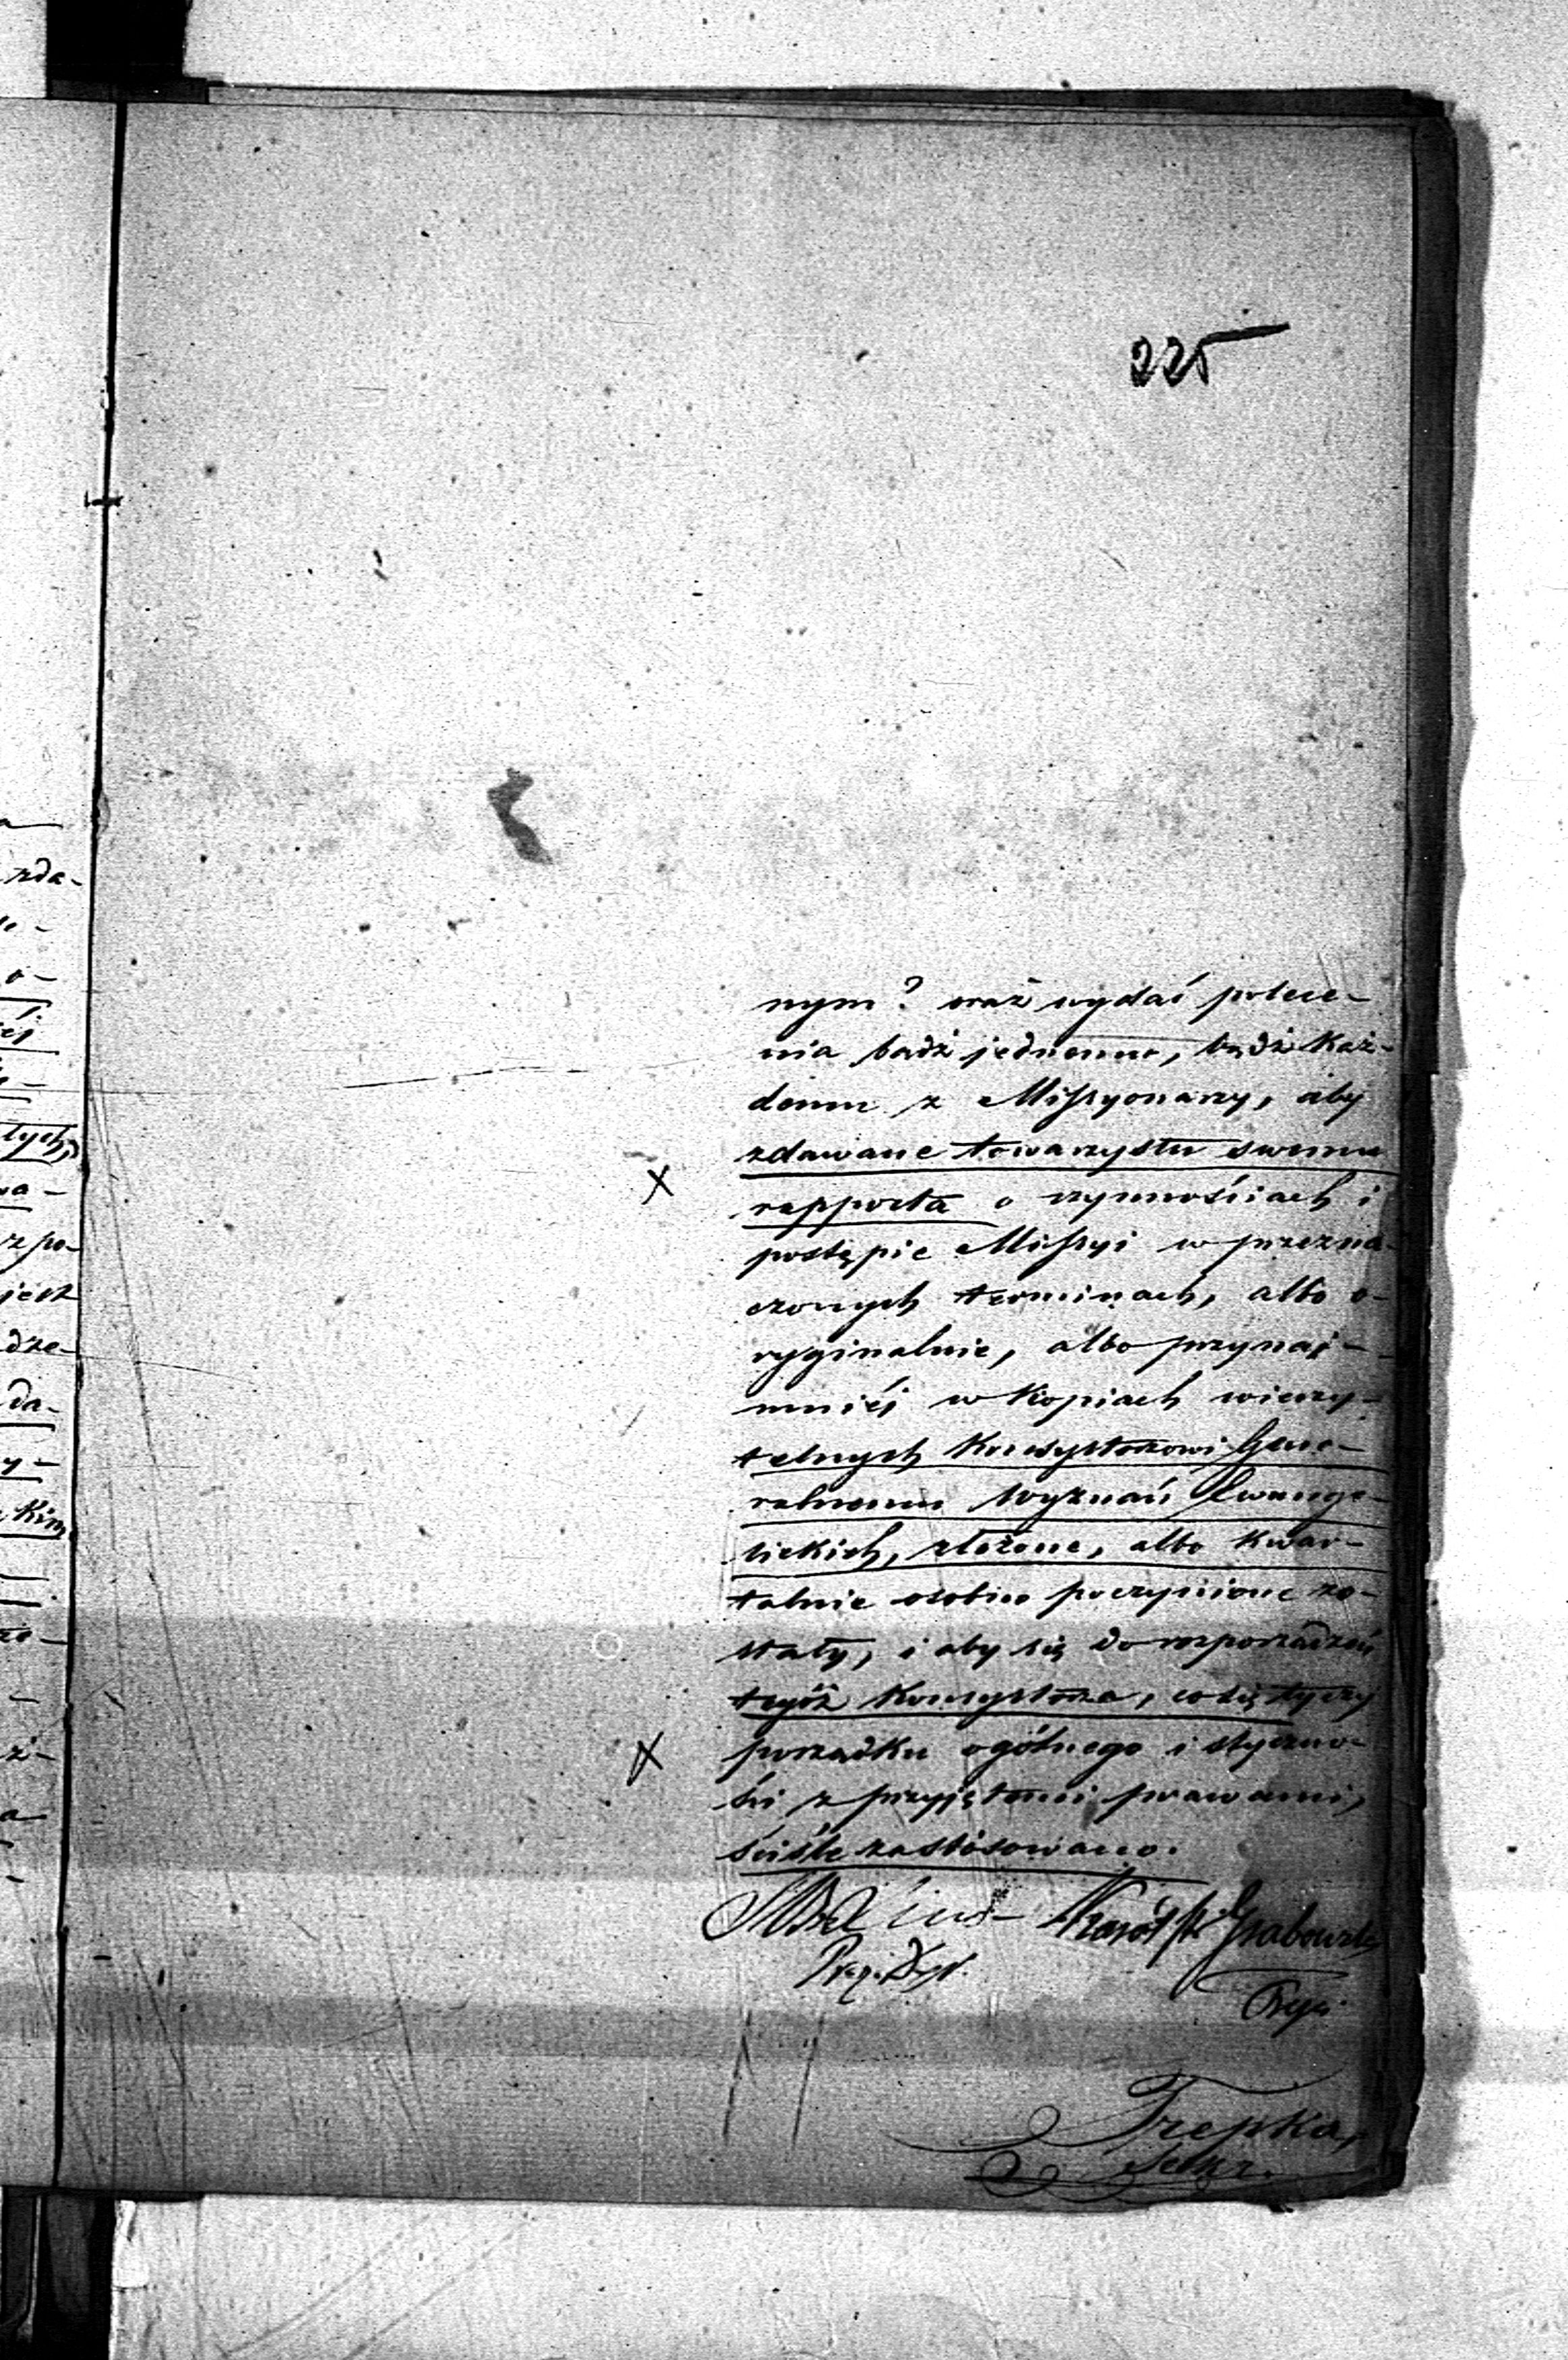 225
nym? oraz wydać polece-
nia bądź jednemu, bądź każ-
demu z Missyonarzy, aby
zdawane towarzystw swemu
rapporta o czynnościach i
postępie Missyi w przezna-
czonych terminach, albo o-
ryginalnie, albo przynaj-
mniéj w kopiach wierzy-
telnych Konsystorzowi Gene-
ralnemu Wyznań Ewange-
lickich, złożone, albo kwar-
talnie osobno poczynione zo-
stały, i aby się do rozporządzeń
tegóż Konsystorza, co się tyczy
porządku ogólnego i styczno-
ści z przyjętemi prawami,
ściśle zastósowano.
Karól Hr. Grabowski
Prez.
Trepka,
Sekr.
zda-
o-
tych,
wa-
zpo-
jest
dze-
da-
y-
kim
że-
ż-
a